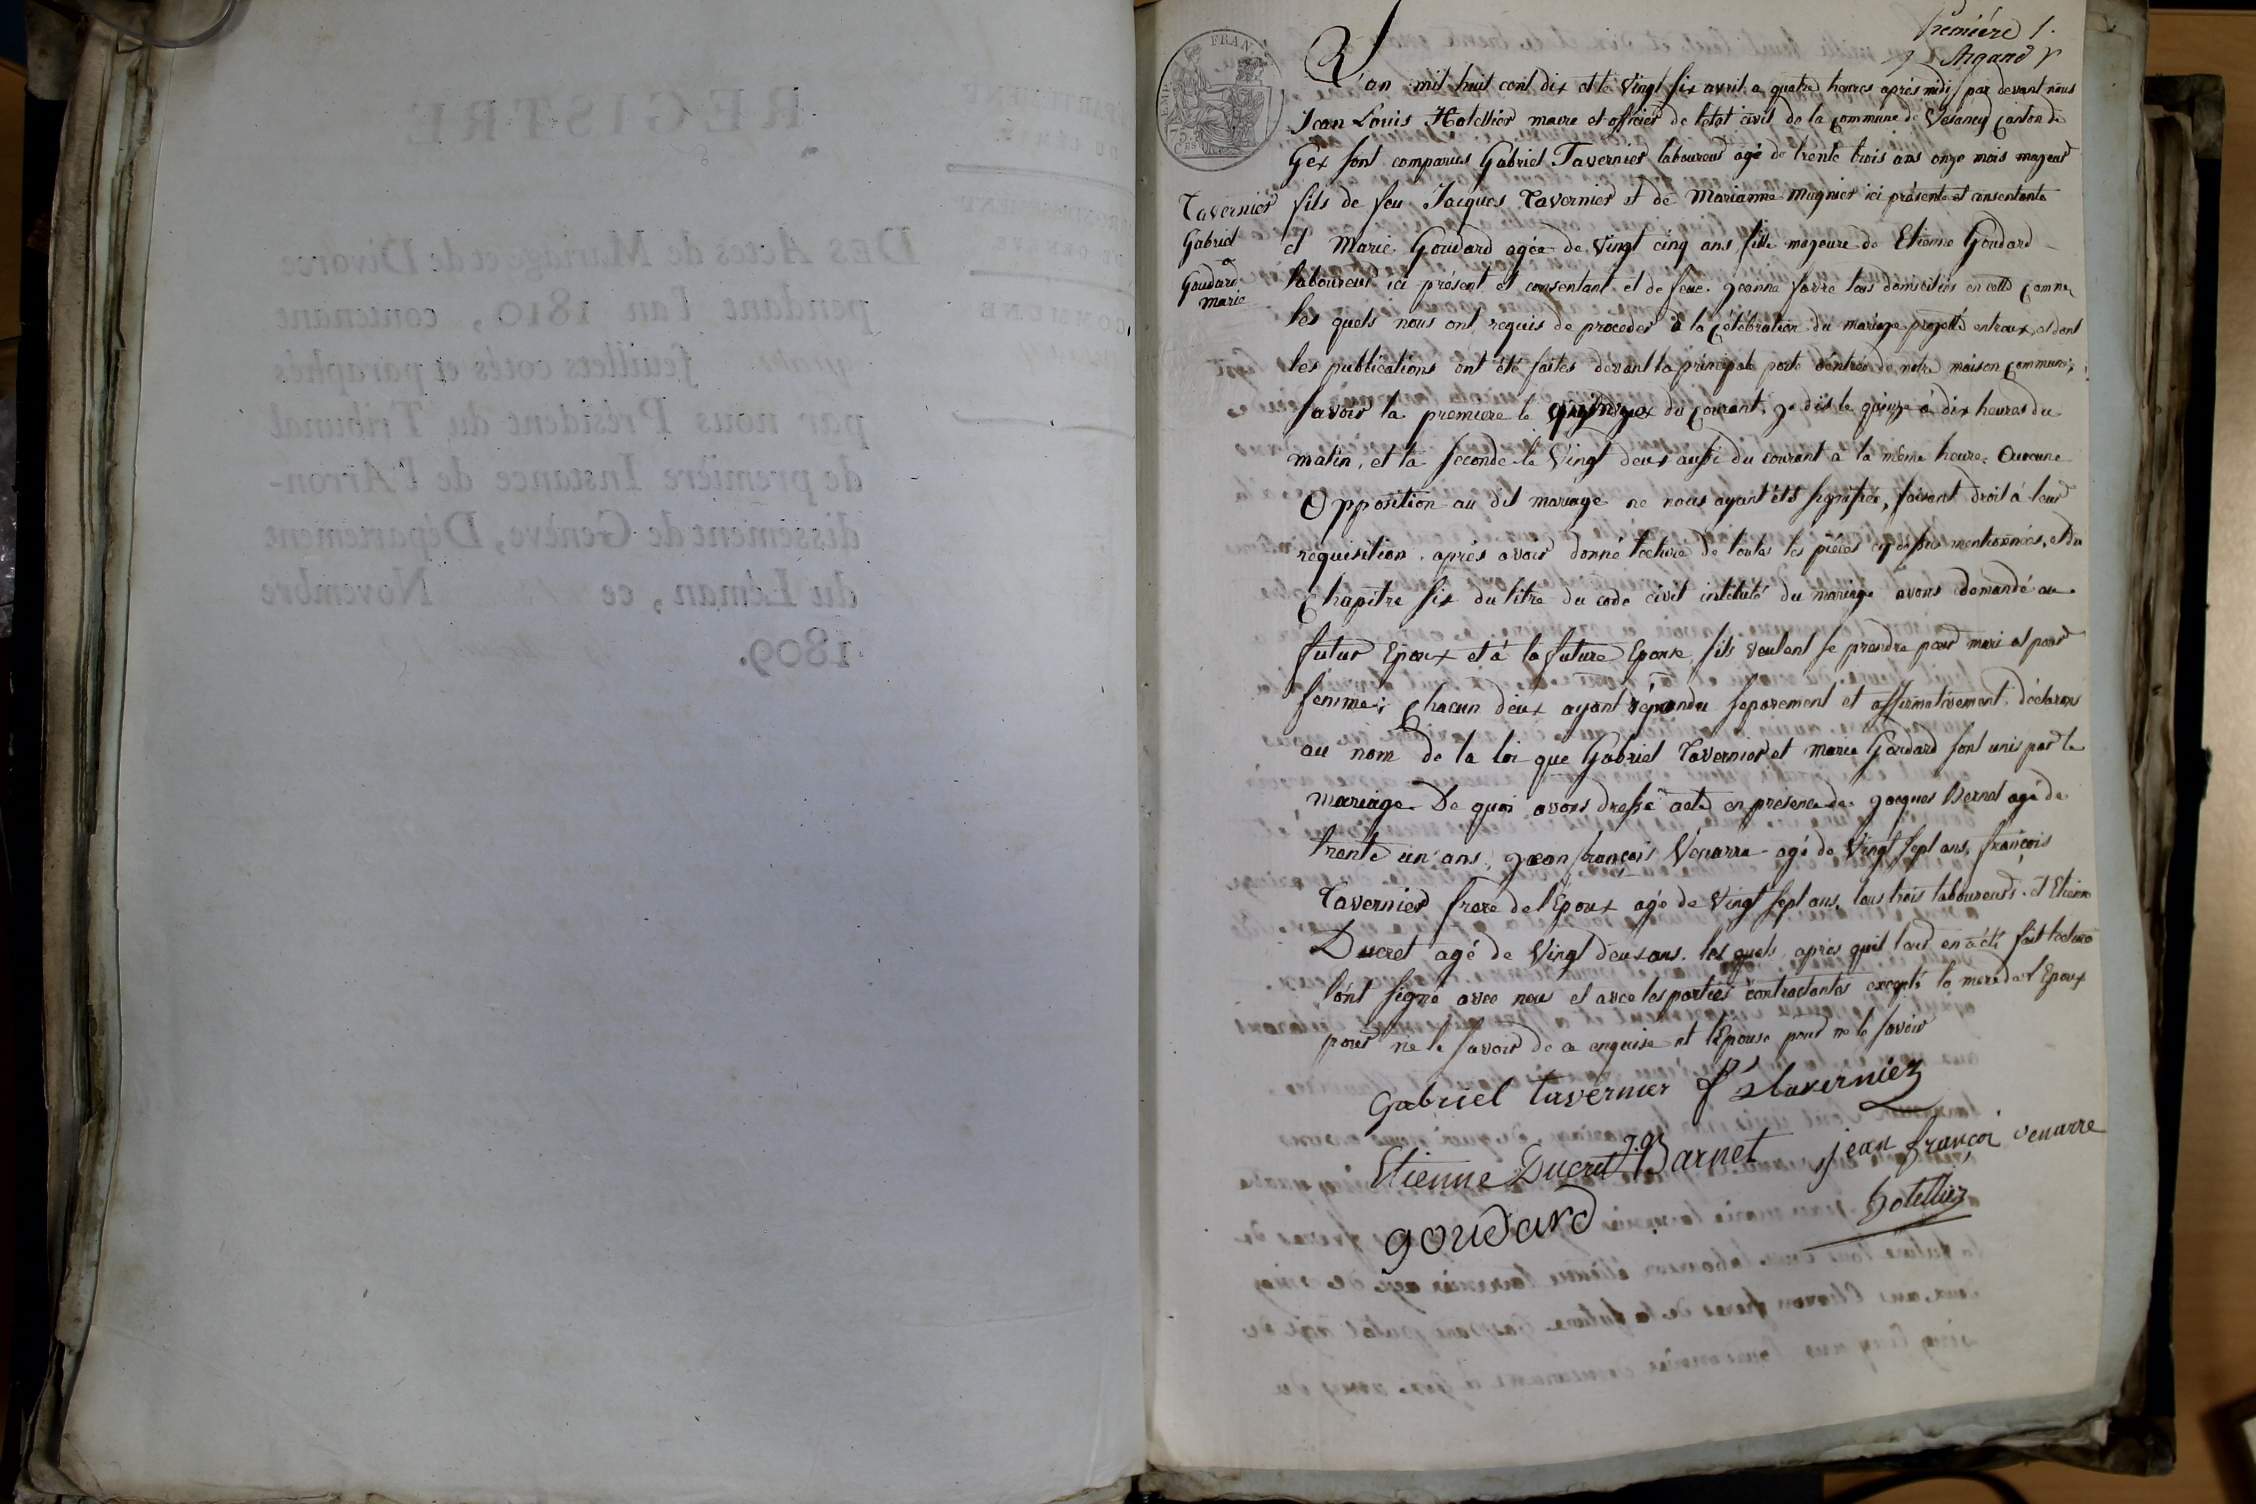 REGISTRE
DES Actes de Mariage et de Divorce
pendant l'an 1810, contenant
feuillets cotés et paraphés
par nous Président du Tribunal
de première Instance de l'Arron-
dissement de Genève, Département
du Léman, ce Novembre
1809.
COMMUNE
première 1.
Argand
FRAN
75
CES
L'an mil huit cent dix et le vingt six avril a quatre heures après midi par devant nous
Jean Louis Hotellier maire et officier de l'etat civil de la commune de Vesancy canton de
Gex sont comparus Gabriel Tavernier laboureur agé de trente trois ans onze mois majeur
Tavernier
Gabriel
&
Goudard
marie
fils de feu Jacques Tavernier et de Marianne Mugnier ici présente et consentante
et Marie Goudard agée de vingt cinq ans fille majeure de Etienne Goudard
laboureur ici présent et consentant et de feue jeanne favre tous domiciliés en cette comne
les quels nous ont requis de proceder à la célébration du mariage projetté entr'eux, et dont
les publications ont été faites devant la principale porte d'entrée de notre maison commune,
savoir la premiere le du courant, je dis le quinze à dix heures du
matin, et la seconde le vingt deux aussi du courant à la même heure. Aucune
Opposition au dit mariage ne nous ayant été signifiée, faisant droit à leur
requisition, après avoir donné lecture de toutes les pièces cy dessus mentionnées, et du
Chapitre six du titre du code civil intitulé du mariage avons demandé au
futur Epoux et à la future Epouse, s'ils veulent se prendre pour mari et pour
femme; Chacun d'eux ayant répondu separement et affirmativement, déclarons
au nom de la loi que Gabriel Tavernier et marie Goudard sont unis par le
mariage. De quoi avons dressé acte en présence de jacques Bernet agé de
trente un ans, jean françois Venarre agé de vingt sept ans, françois
Tavernier frere de l'Epoux agé de vingt sept ans, tous trois laboureurs, et Etienne
Ducret agé de vingt deux ans, les quels, après qu'il leur en a été fait lecture
l'ont signé avec nous et avec les parties contractantes excepté la mere de l'Epoux
pour ne le savoir de ce enquise et l'Epouse pour ne le savoir
Gabriel tavernier f s tavernier
Etienne Ducret J Barnet jean françoi venarre
goudard hotellier